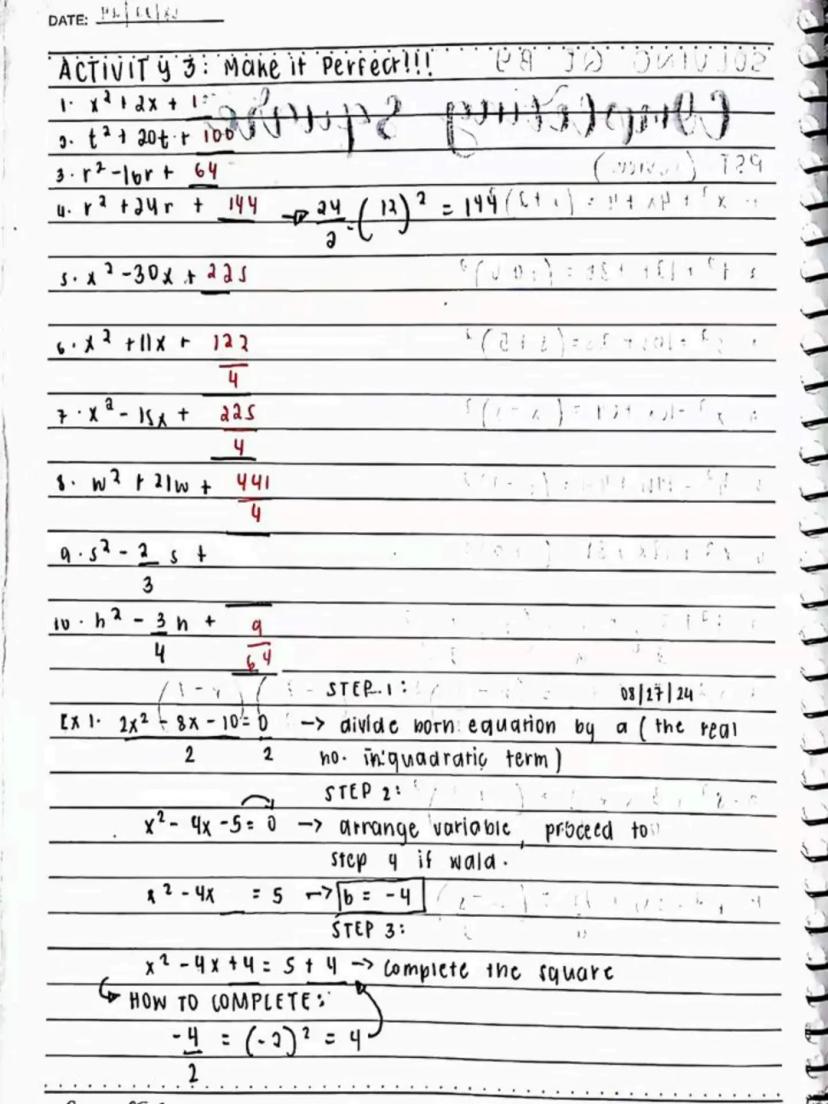 DATE:
ACTIVITY 3: Make it Perfect!!!
1. x² + 2x + 1
2. t² + 20t + 100
3. r² - 16r + 64
4. r² + 24r + 144 → 24/2 = (12)² = 144
5. x² - 30x + 225
6. x² + 11x + 122/4
7. x² - 15x + 225/4
8. w² + 21w + 441/4
9. s² - 2/3 s +
10. h² - 3/4 h + 9/64
STEP 1: 08/27/24
EX 1. 2x² - 8x - 10/2 = 0/2 → divide born equation by a (the real
no. in quadratic term)
STEP 2:
x² - 4x - 5 = 0 → arrange variable, proceed to
step 4 if wala.
x² - 4x __ = 5 → b = -4
STEP 3:
x² - 4x + 4 = 5 + 4 → complete the square
↳ HOW TO COMPLETE:
-4/2 = (-2)² = 4